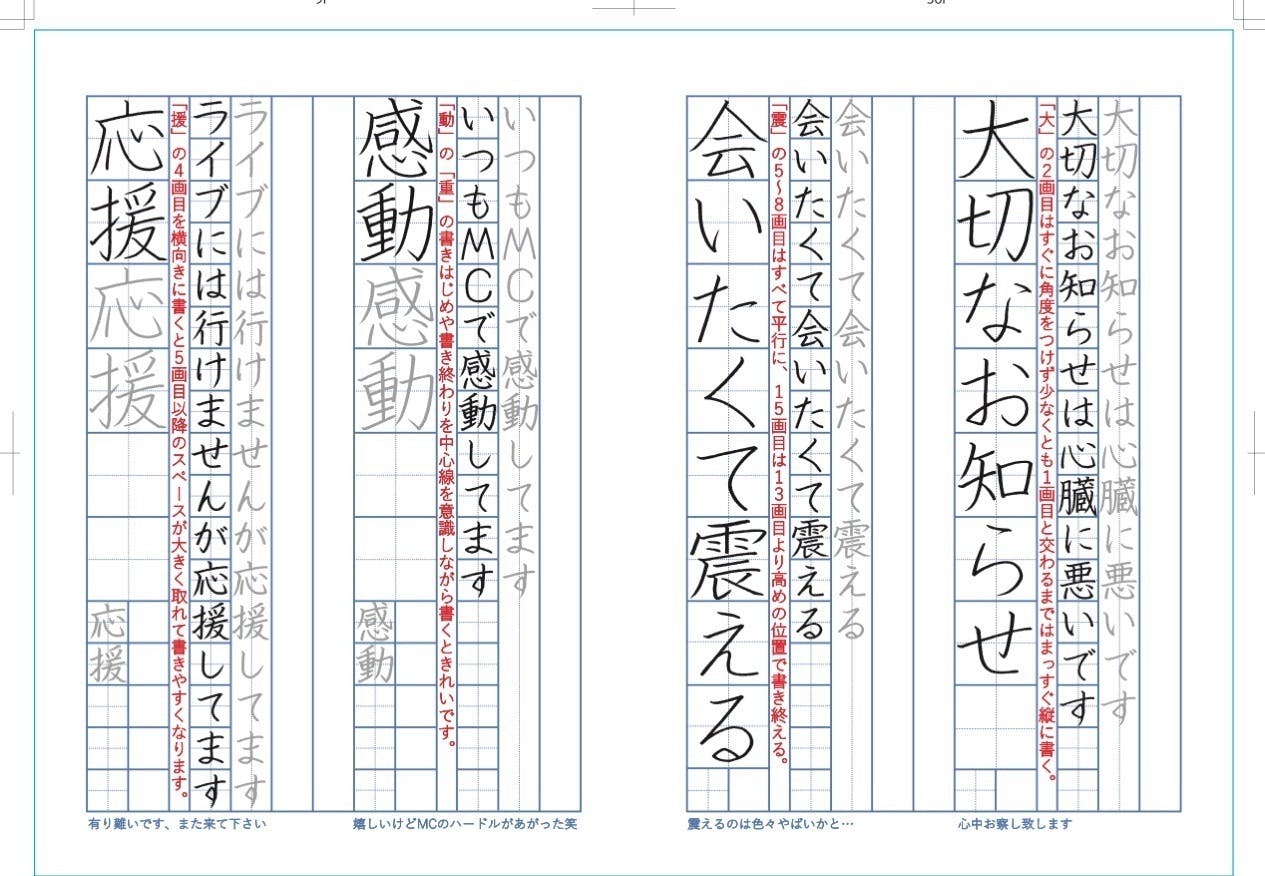 大切なお知らせは心臓に悪いです
大切なお知らせは心臓に悪いです
「大」の2画目はすぐに角度をつけず少なくとも1画目と交わるまではまっすぐ縦に書く。
大切なお知らせ
心中お察し致します
会いたくて会いたくて震える
会いたくて会いたくて震える
「震」の5〜8画目はすべて平行に、15画目は13画目より高めの位置で書き終える。
会いたくて震える
震えるのは色々やばいかと…
いつもMCで感動してます
いつもMCで感動してます
「動」の「重」の書きはじめや書き終わりを中心線を意識しながら書くときれいです。
感動感動
感動
嬉しいけどMCのハードルがあがった笑
ライブには行けませんが応援してます
ライブには行けませんが応援してます
「援」の4画目を横向きに書くと5画目以降のスペースが大きく取れて書きやすくなります。
応援応援
応援
有り難いです、また来て下さい